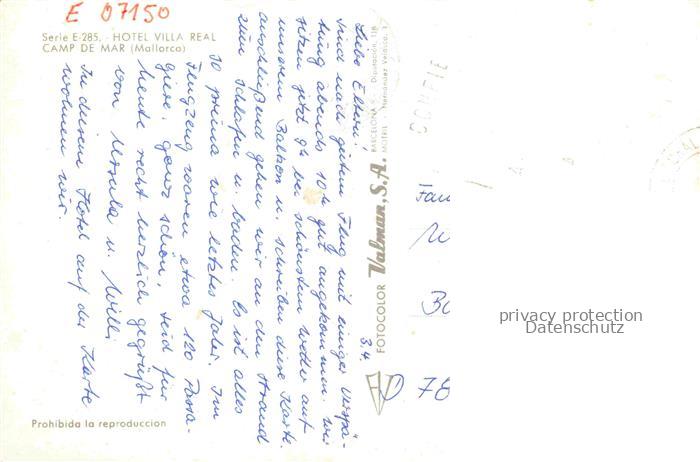 E 07150
Serie E-285. - HOTEL VILLA REAL
CAMP DE MAR (Mallorca)
Liebe Eltern!
Sind nach gutem Flug mit einiger Verspä-
tung abends 10 h gut angekommen. Wir
sitzen jetzt 9h bei schönstem Wetter auf
unserem Balkon u. schreiben diese Karte.
anschließend gehen wir an den Strand
zum Schlafen u. baden. Es ist alles
so prima wie letztes Jahr. Im
Flugzeug waren etwa 120 Passa-
giere. ganz schön, seid für
heute recht herzlich gegrüßt
von Ursula u. Willi
In diesem Hotel auf der Karte
wohnen wir.
Prohibida la reproduccion
FOTOCOLOR Valman, S.A.
BARCELONA - Diputación, 118
MOTRIL - Hernández Velasco,
34
Fam
D 78
privacy protection
Datenschutz